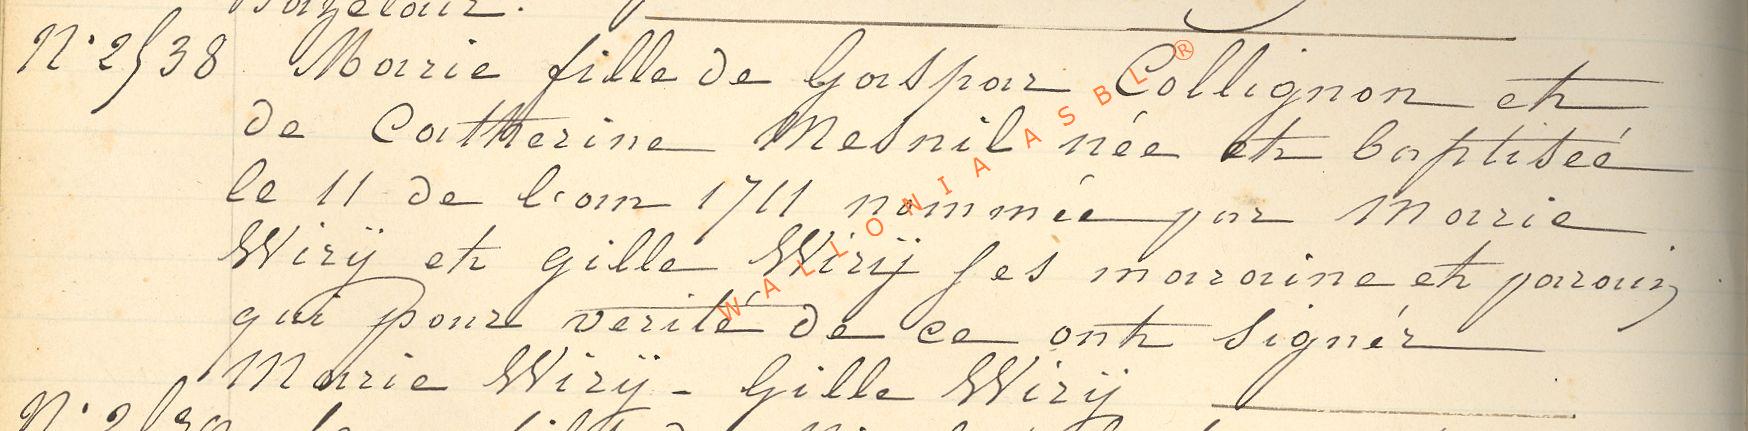 N° 2/38 Marie fille de Gaspar Collignon et
de Catherine Mesnil née et baptiseé
le 11 de l'an 1711 nommée par Marie
Wirÿ et gille Wirÿ ses maraine et parain
qui pour verité de ce ont signér
Marie Wirÿ - Gille Wirÿ
WALLONIA ASBL ®